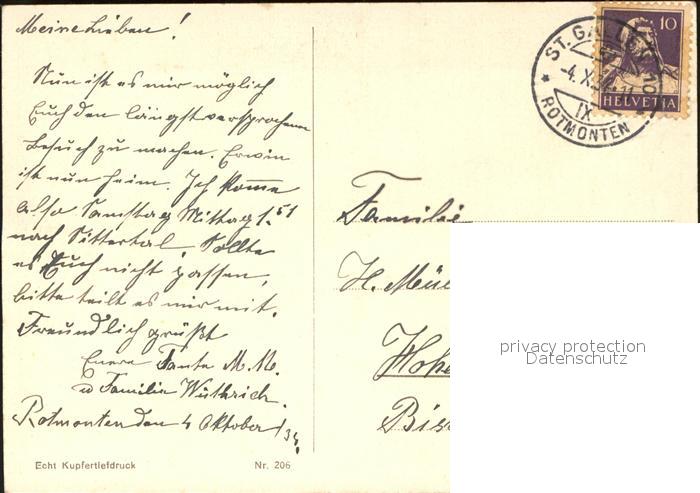 Meine Lieben!
Nun ist es mir möglich
Euch den längst versprochenen
Besuch zu machen. Erwin
ist nun heim. Ich komme
also Samstag Mittag 1.51
nach Sittertal. Sollte
es Euch nicht passen,
bitte teilt es mir mit.
Freundlich grüßt
Euere Tante M. M.
u Familie Wüthrich.
Rotmonten den 4 Oktober /34.
Echt Kupfertiefdruck Nr. 206
ST. GALLEN 10
-4.X.34.-11
IX
ROTMONTEN
10
HELVETIA
Familie
H. Mül
Hohe
Bis
privacy protection
Datenschutz